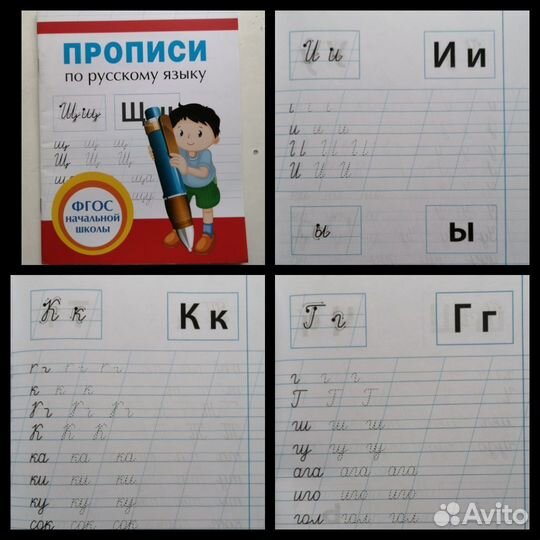 ПРОПИСИ
по русскому языку
Щ щ Щ щ
щ щ щ
Щ Щ Щ
ща
щу
ФГОС
начальной
школы
И и И и
и и и
И И И
ы Ы
К к К к
к к к
К К К
ка ка ка
ки ки ки
ку ку ку
сок сок сок
Г г Г г
г г г
Г Г Г
ги ги ги
гу гу гу
ага ага ага
иго иго иго
гол гол гол
Avito